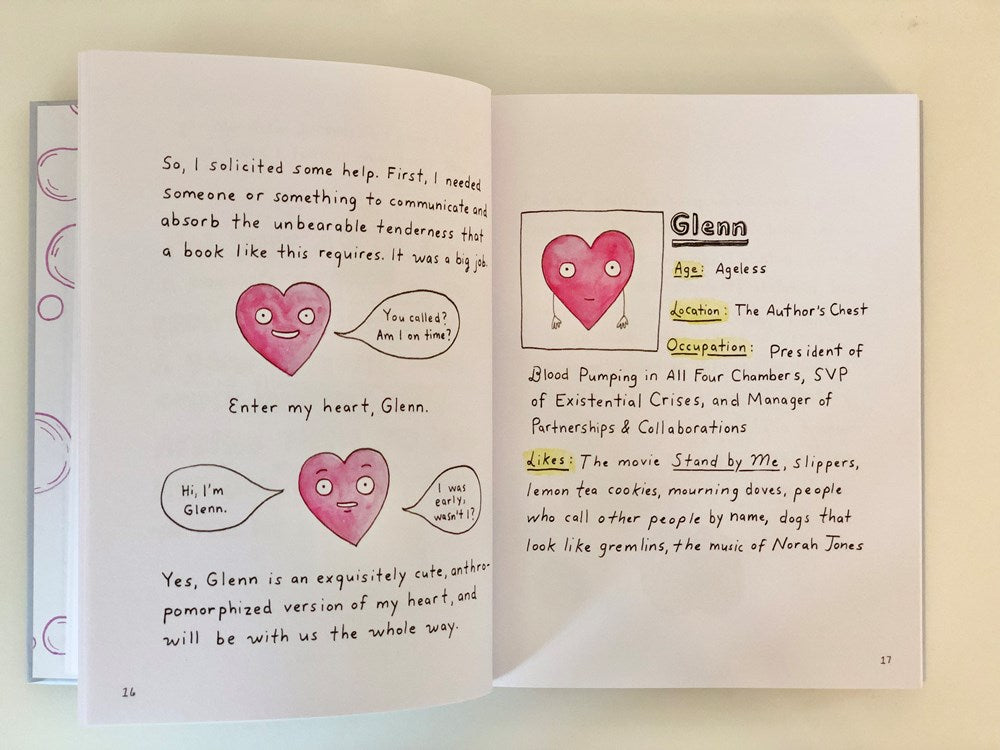 So, I solicited some help. First, I needed
someone or something to communicate and
absorb the unbearable tenderness that
a book like this requires. It was a big job.
You called?
Am I on time?
Enter my heart, Glenn.
Hi, I'm
Glenn.
I was
early,
wasn't I?
Yes, Glenn is an exquisitely cute, anthro-
pomorphized version of my heart, and
will be with us the whole way.
16
Glenn
Age: Ageless
Location: The Author's Chest
Occupation: President of
Blood Pumping in All Four Chambers, SVP
of Existential Crises, and Manager of
Partnerships & Collaborations
Likes: The movie Stand by Me, slippers,
lemon tea cookies, mourning doves, people
who call other people by name, dogs that
look like gremlins, the music of Norah Jones
17